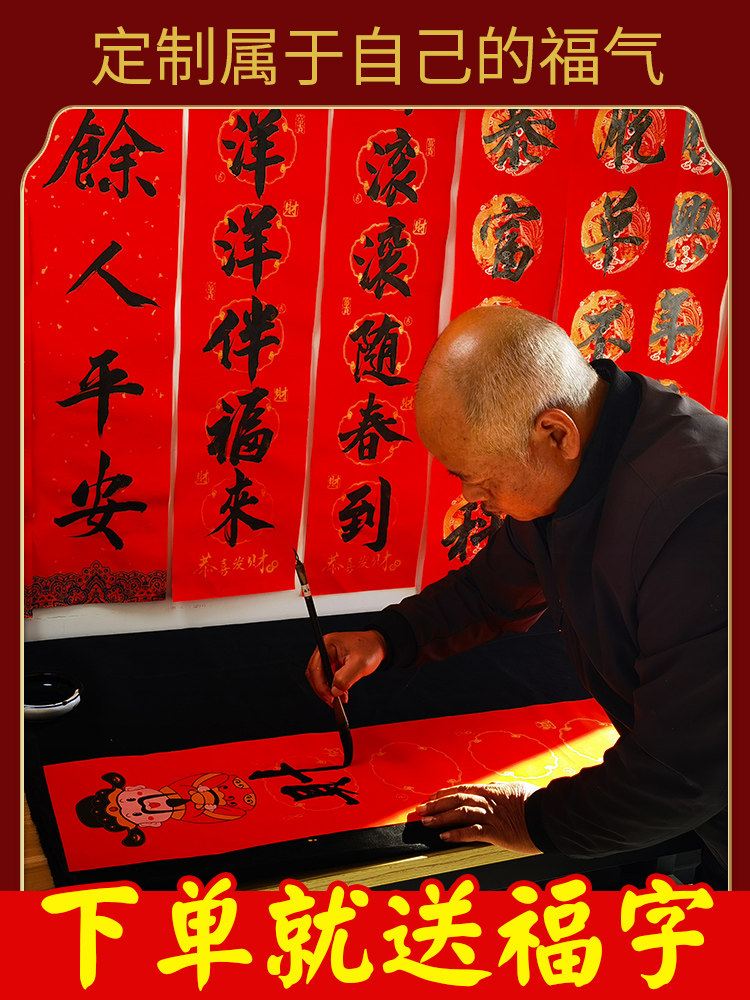 定制属于自己的福气
餘人平安
洋洋伴福来
恭喜发财
滚滚随春到
恭喜发财
泰富
脱单不
興年
财
财
下单就送福字